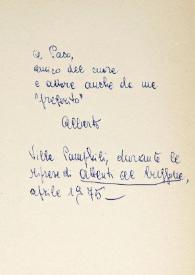 A Paso,
amico del cuore
e attore anche da me
"preferito"
Alberto
Villa Pamphili, durante le
riprese di Attenti al buffone,
aprile 1975